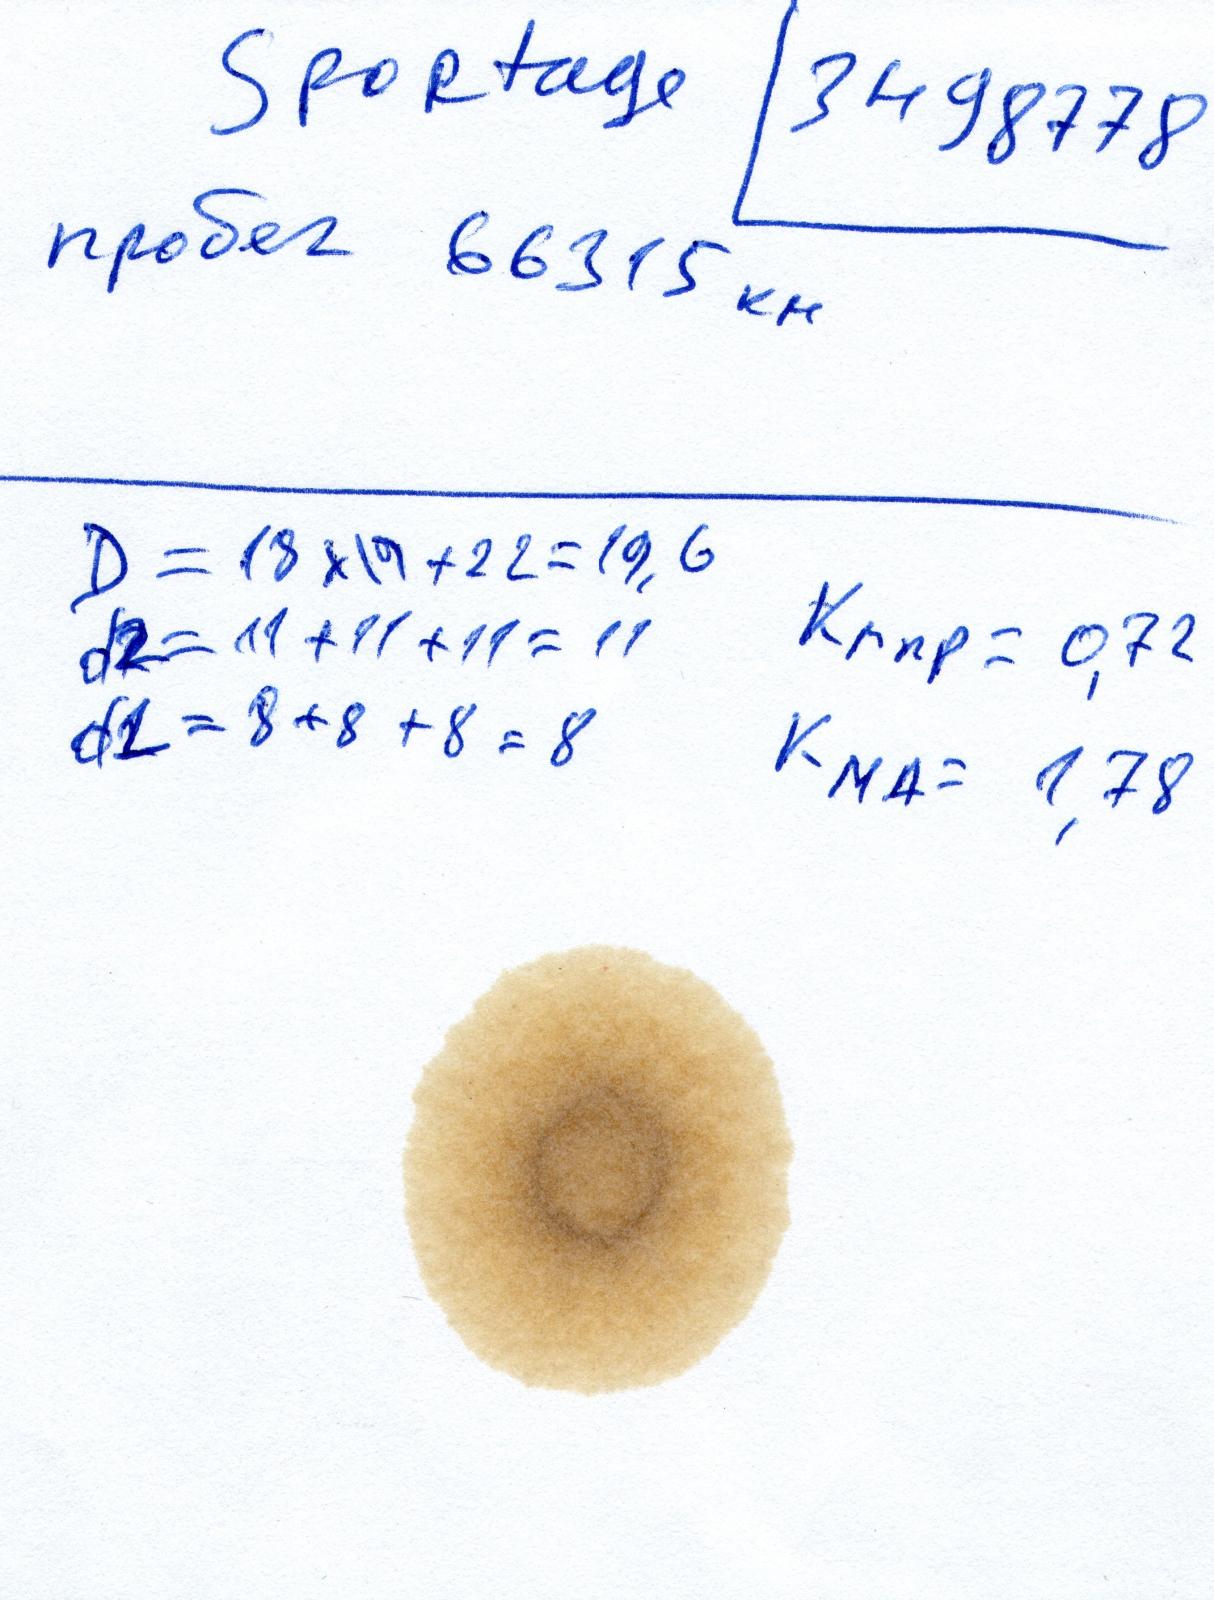 Sportage 3498778
пробег 66315 км
D = 18+19+22=19,6
d2= 11+11+11= 11
d1= 8+8+8=8
Kмпр= 0,72
KМД= 1,78